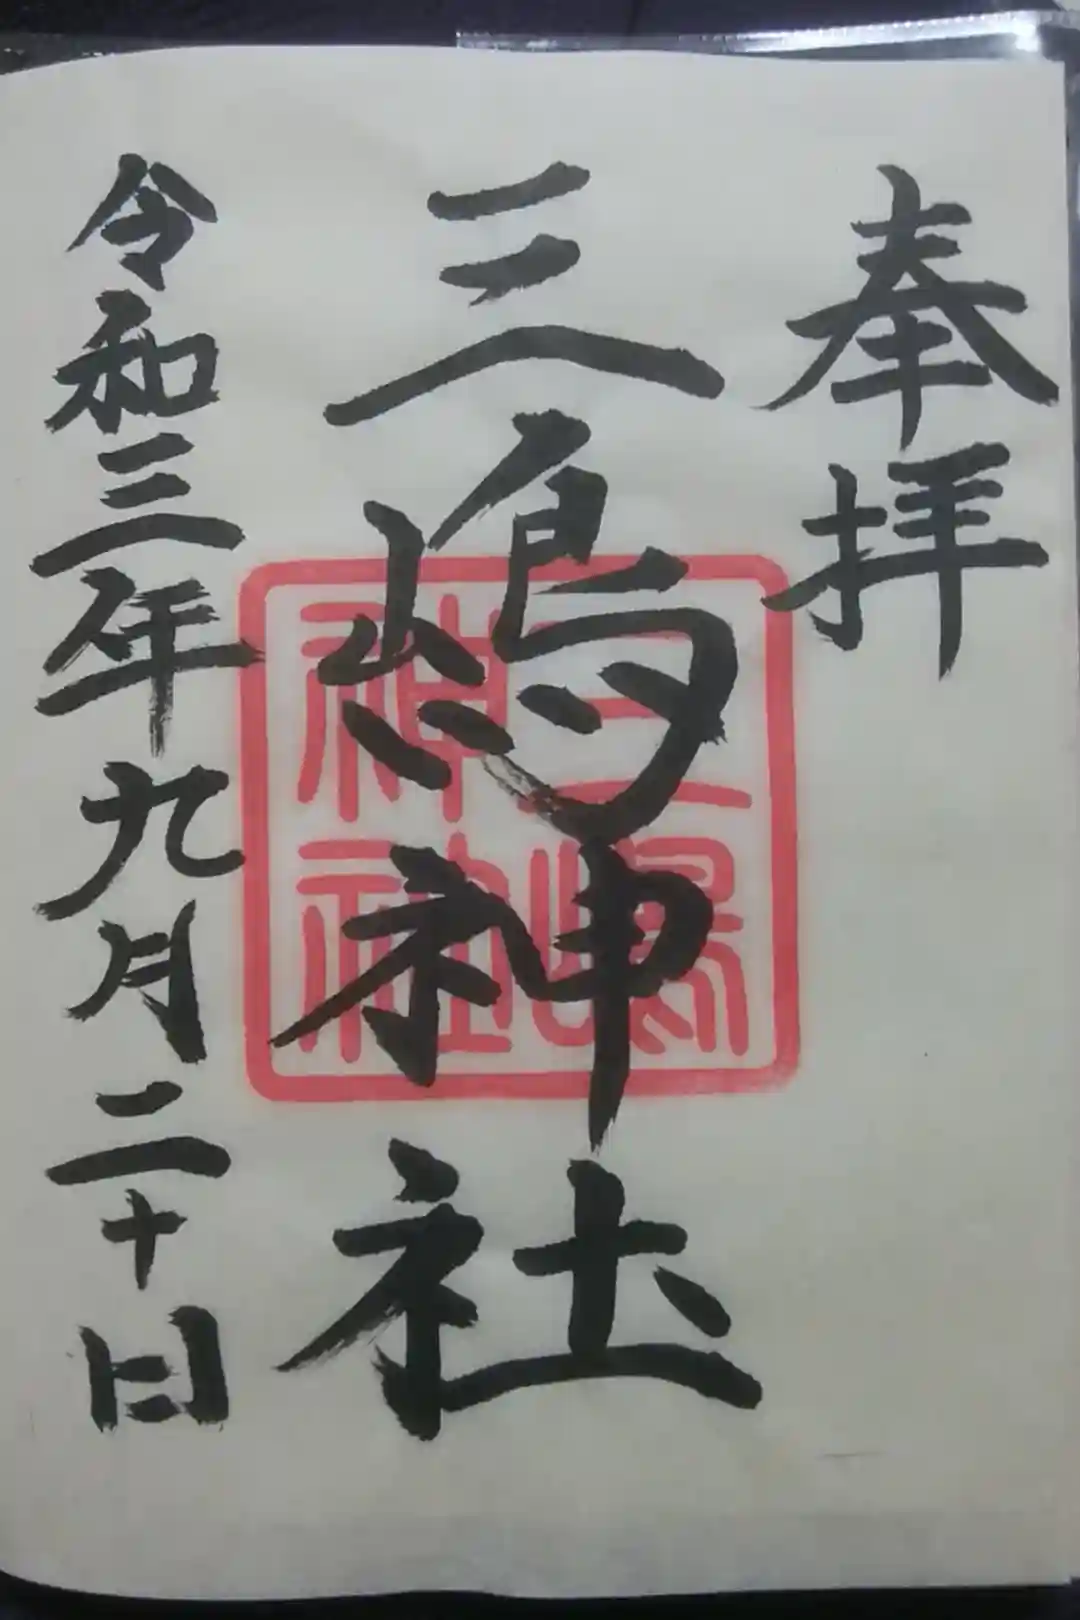 奉拝
三嶋神社
三嶋
神社
令和三年九月二十日